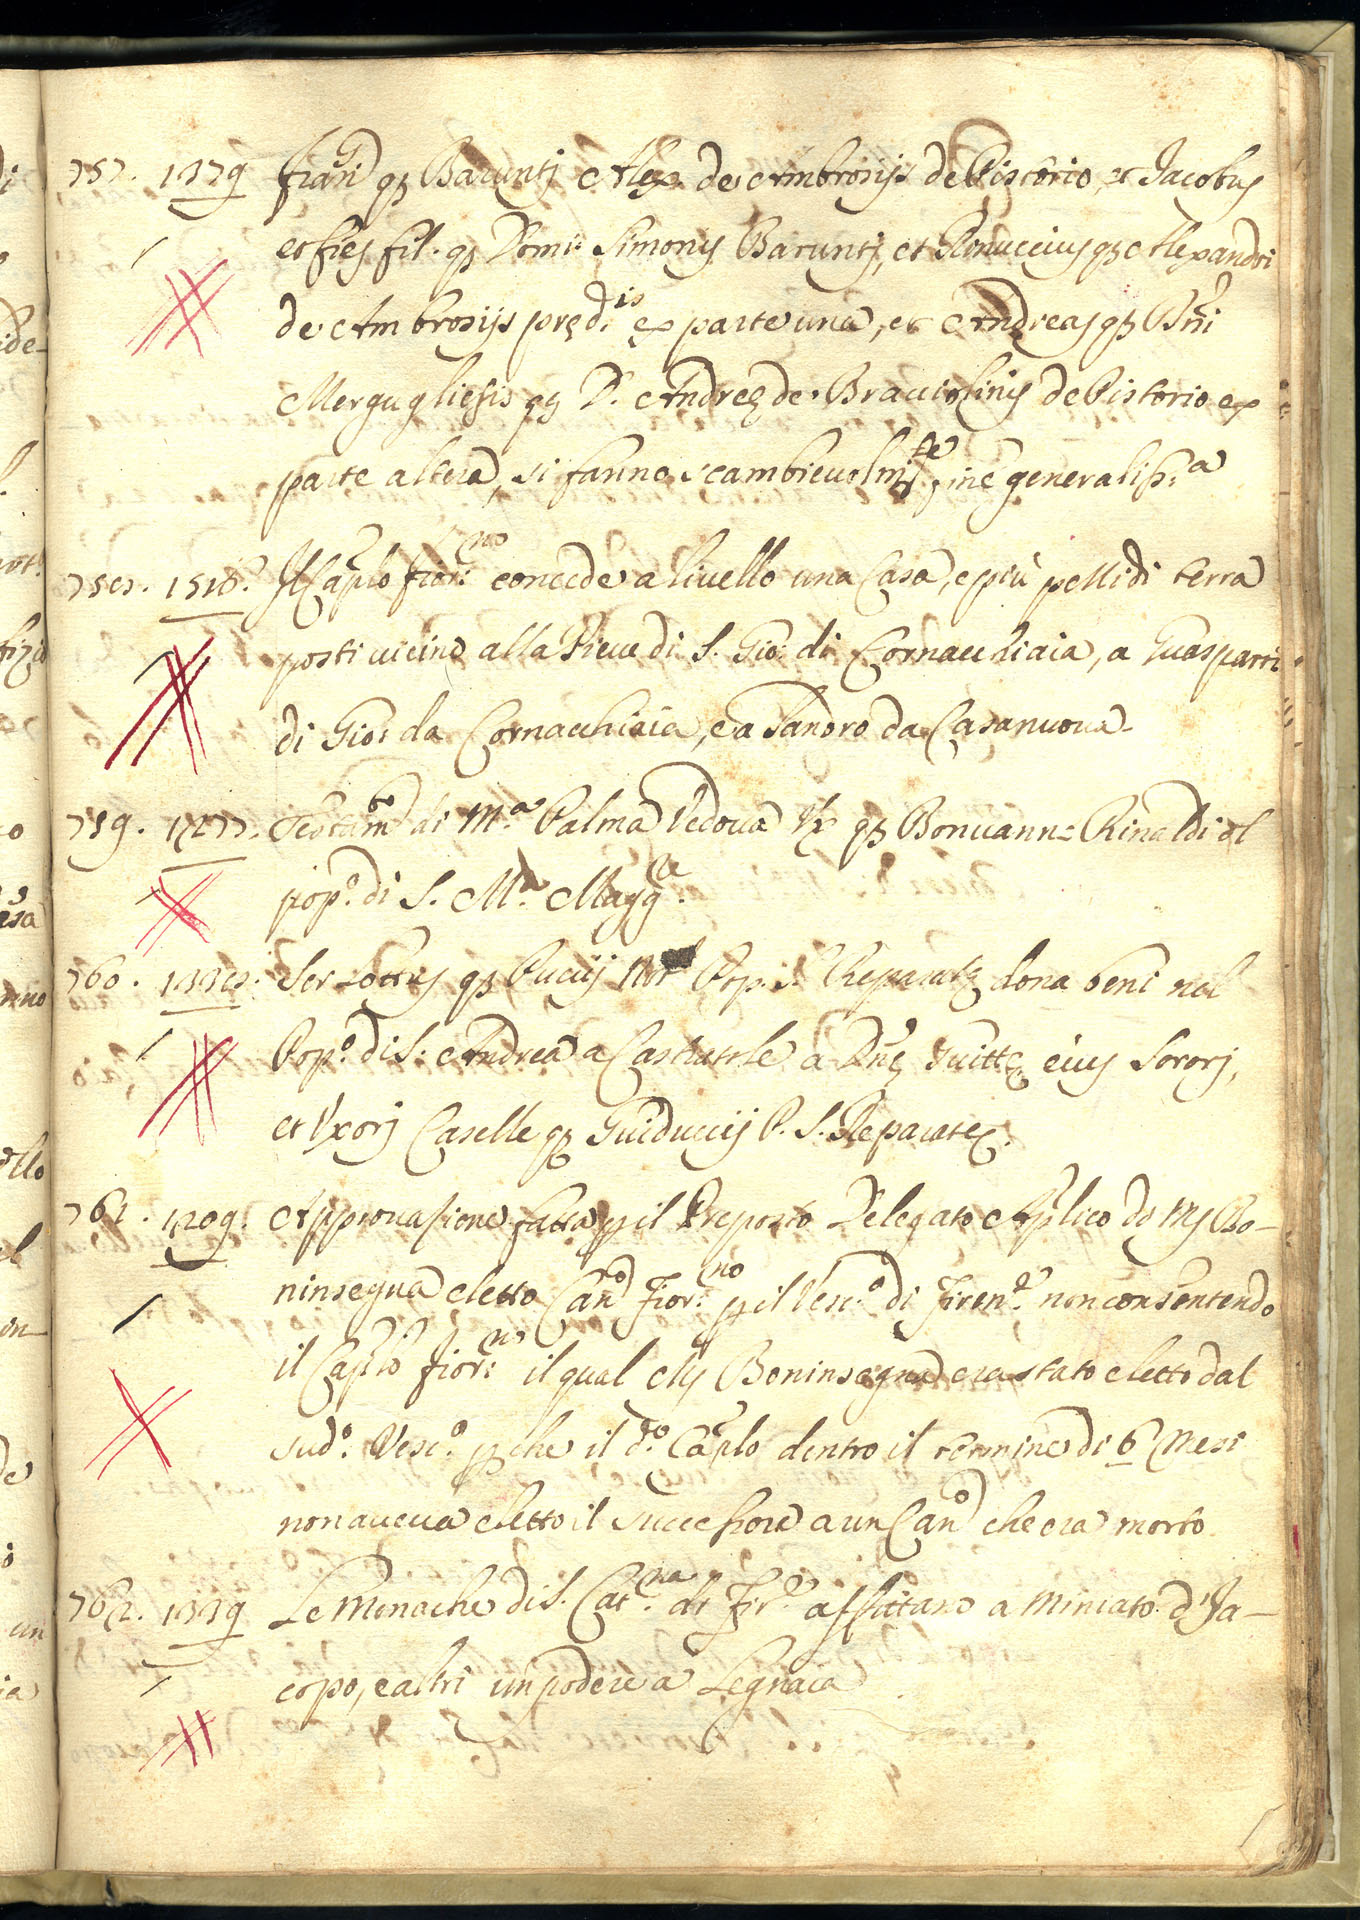 757. 1379 qȝ Barunti Alex. de Ambrosijs de Pistorio, et Jacobus
et fr̃es fil. qȝ Dom: Simonis Barunti, et Ranuccius qȝ Alexandri
de Ambrosijs pręd:is ex parte una, et Andreas qȝ
Mergugliesis qȝ D. Andreę de Bracciolinis de Pistorio ex
parte altera, si fanno scambievolm:te fine generaliss:a
758. 1518. Il Cap̃lo fior:no concede a livello una Casa, e più pezzi di terra
posti vicino alla Pieve di S. Gio: di Cornacchiaia, a Guasparri
di Gio: da Cornacchiaia, e a Sandro da Casanuova.
759. Testam:to di M:a Palma Vedova Vx. qȝ Rinaldi del
pop:o di S. M:a Magg:re
760. Ser qȝ Puccij Not: Pop. S. Reparatę dona beni nel
Pop:o di S: Andrea a a Dñę Guittę eius Sorori,
et Vxori Caselle qȝ Guiduccij P. S. Reparatę.
761. 1209. Approvazione fatta p il Preposto Delegato Ap̃lico di M: Bo-
ninsegna eletto Can:co Fior:no p il Vesc:o di Firen:e non consentendo
il Cap̃lo fior:no il qual M: Boninsegna era stato eletto dal
sud:o Vesc:o p che il d:o Cap̃lo dentro il termine di 6 Mesi
non aveva eletto il successore a un Can:co che era morto.
762. 1339 Le Monache di S. Cat:na di Fir:e affittano a Miniato d'Ja-
copo, e altri un podere a Legnaia